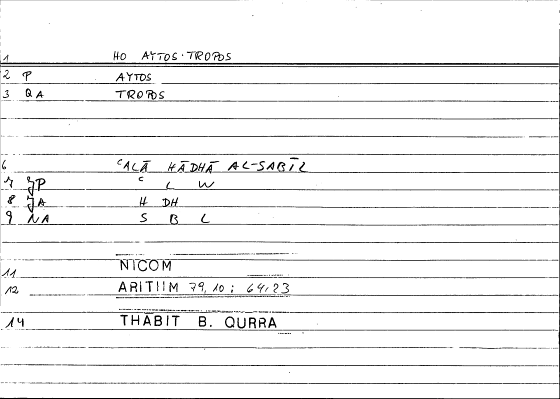 1 HO AYTOS·TROPOS
2 P AYTOS
3 QA TROPOS
6 ʿALĀ HĀDHĀ AL-SABĪL
7 JP ʿ L W
8 JA H DH
9 NA S B L
11 NICOM
12 ARITIIM 79,10; 64,23
14 THĀBIT B. QURRA